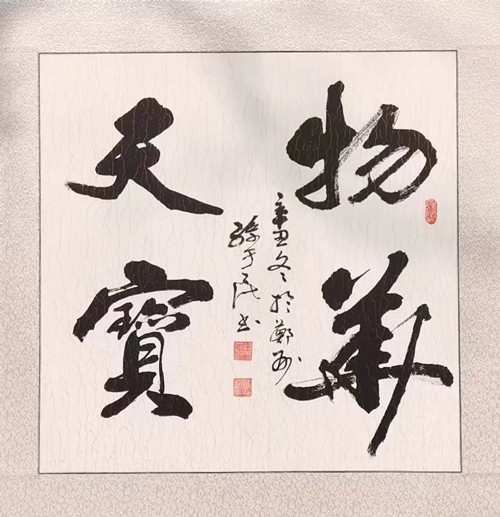 物華
天寶
辛丑冬於鄭州
孫子民书